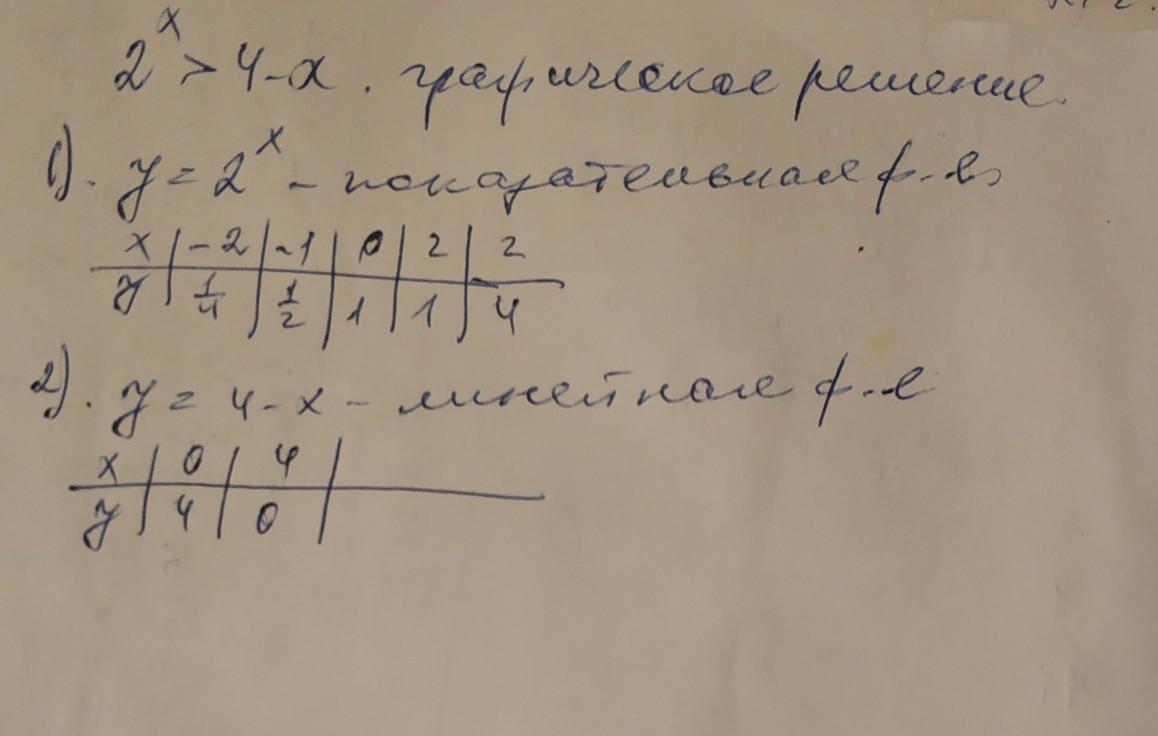 2^x > 4-x. графическое решение.
1). y = 2^x - показательная ф-я
x | -2 | -1 | 0 | 2 | 2
y | 1/4 | 1/2 | 1 | 1 | 4
2). y = 4-x - линейная ф-я
x | 0 | 4 |
y | 4 | 0 |